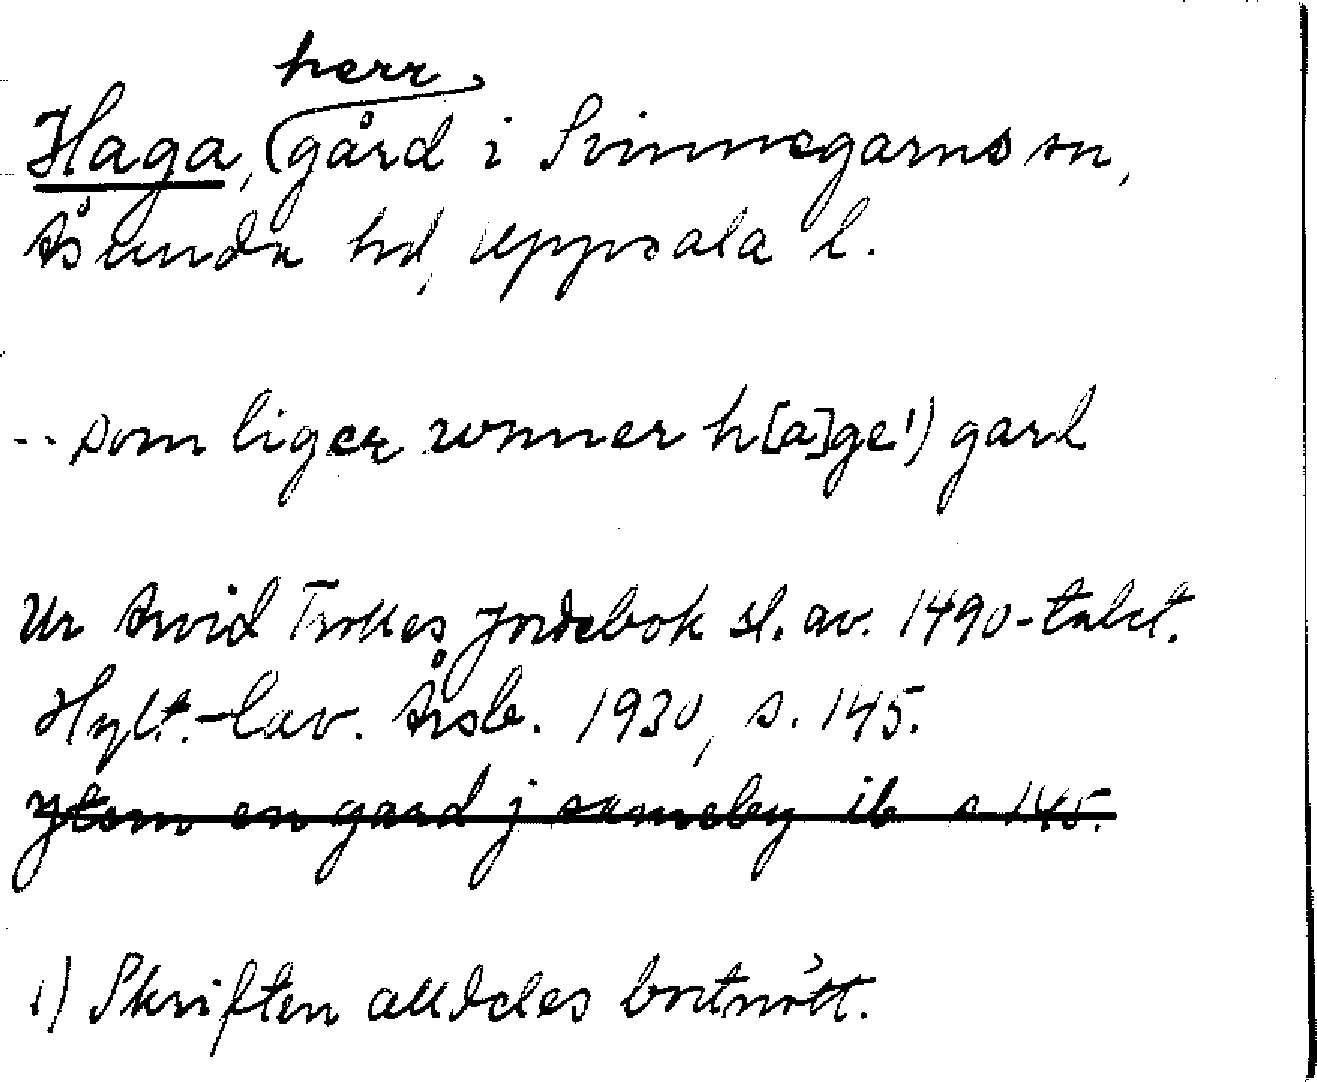 herr
Haga, gård i Svinnegarns sn,
Åsunda hd, Uppsala l.
-- som liger wnner h[a]ge¹) gard
Ur Arvid Trolles jordebok sl. av. 1490-talet.
Hylt.-Cav. Årsb. 1930, s. 145.
ytem en gard j sameby ib s 145.
1) Skriften alldeles bortnött.